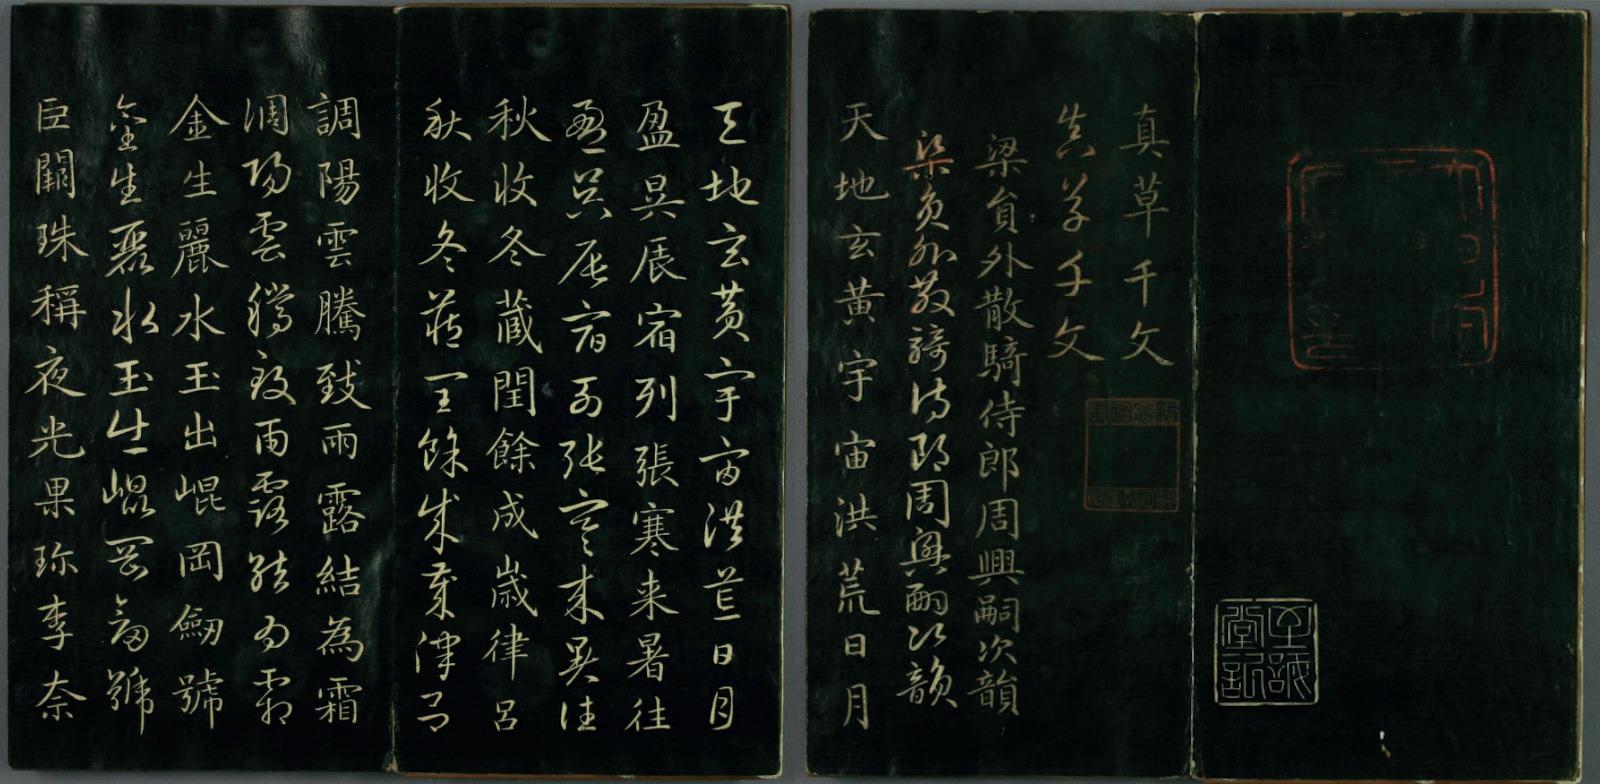 至誠堂記
真草千文
真草千文
梁員外散騎侍郎周興嗣次韻
梁員外散騎侍郎周興嗣次韻
天地玄黃宇宙洪荒日月
天地玄黃宇宙洪荒日月
盈昃辰宿列張寒来暑往
盈昃辰宿列張寒来暑往
秋收冬藏閏餘成歲律呂
秋收冬藏閏餘成歲律呂
調陽雲騰致雨露結為霜
調陽雲騰致雨露結為霜
金生麗水玉出崐岡劒號
金生麗水玉出崐岡劒號
巨闕珠稱夜光果珍李柰